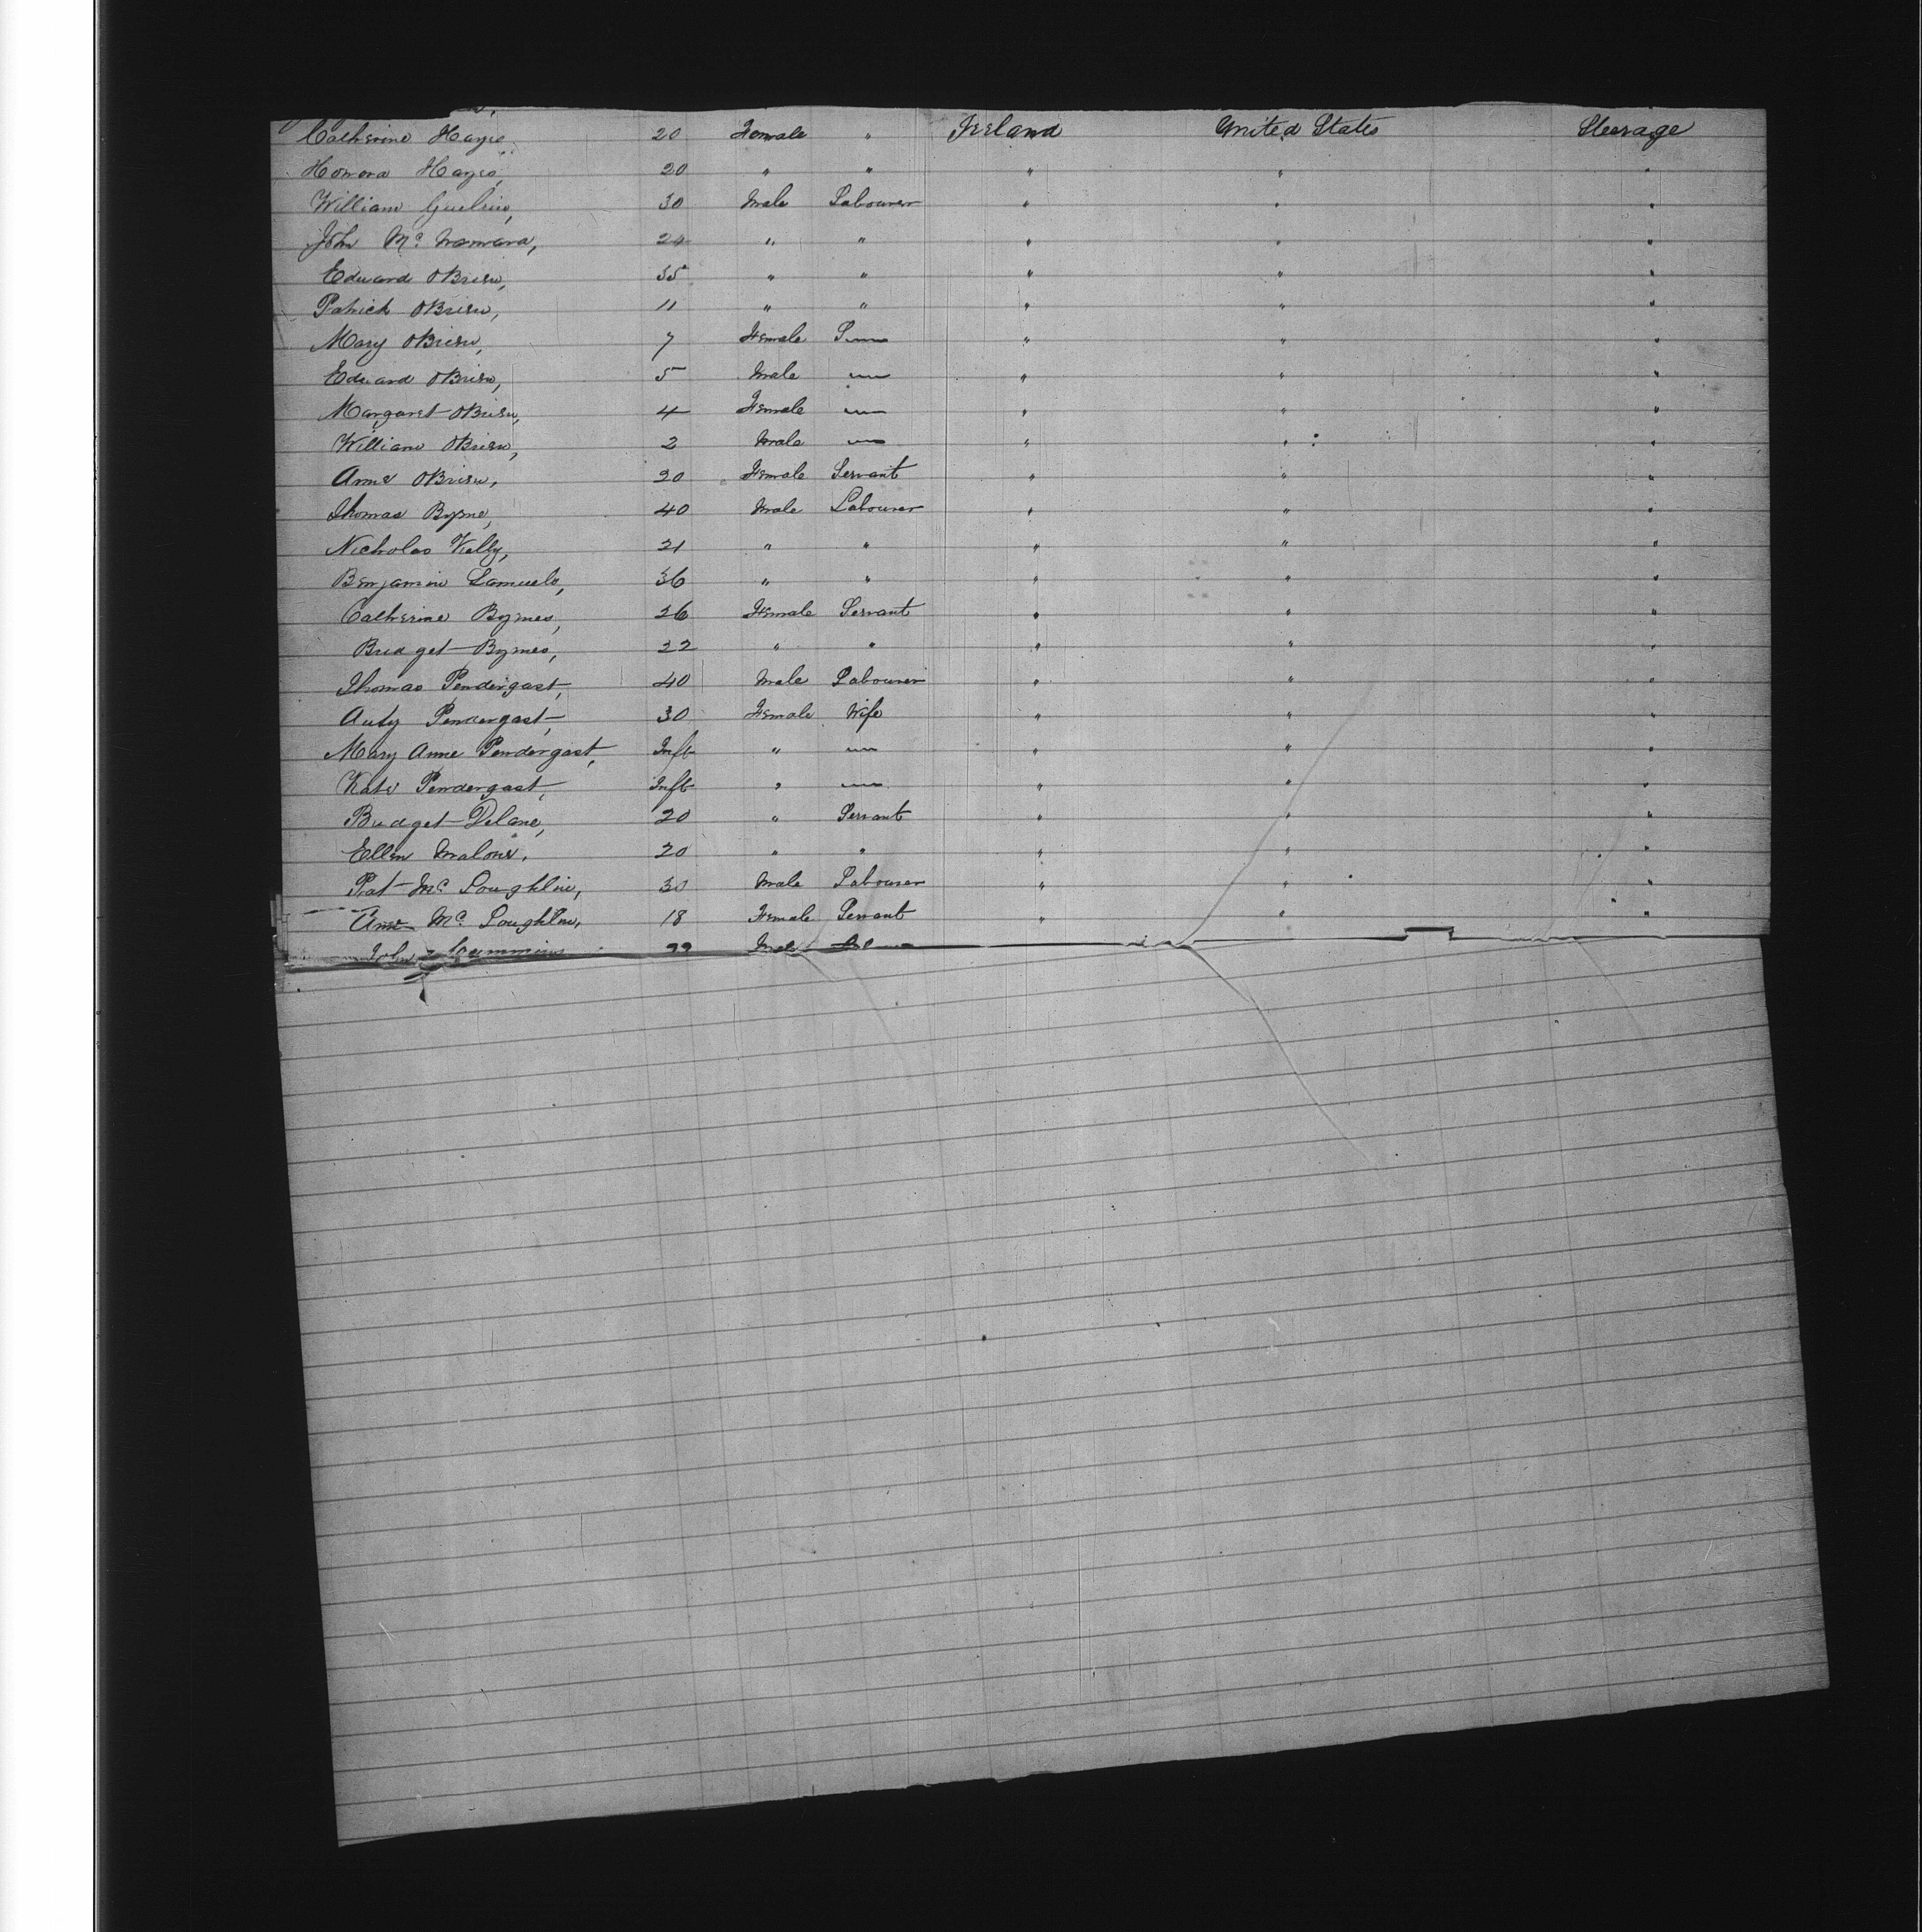 Catherine Hayes, 20 Female " Ireland United States Steerage
Honora Hayes, 20 " " " " "
William 30 Male Labourer " " "
John McNamara, 24 " " " " "
Edward OBrien, 35 " " " " "
Patrick OBrien, 11 " " " " "
Mary OBrien, 7 Female " " "
Edward OBrien, 5 Male — " " "
Margaret OBrien, 4 Female — " " "
William OBrien, 2 Male — " " "
Anne OBrien, 20 Female Servant " " "
Thomas Byrne, 40 Male Labourer " " "
Nicholas Kelly, 21 " " " " "
Benjamin Samuels, 36 " " " " "
Catherine Byrnes, 26 Female Servant " " "
Bridget Byrnes, 22 " " " " "
Thomas Pendergast, 40 Male Labourer " " "
Pendergast, 30 Female Wife " " "
Mary Anne Pendergast, Inft " — " " "
Kate Pendergast, Inft " — " " "
Bridget Delane, 20 " Servant " " "
Ellen Malone, 20 " " " " "
Pat McLoughlin, 30 Male Labourer " " "
Anne McLoughlin, 18 Female Servant " " "
John Cummins